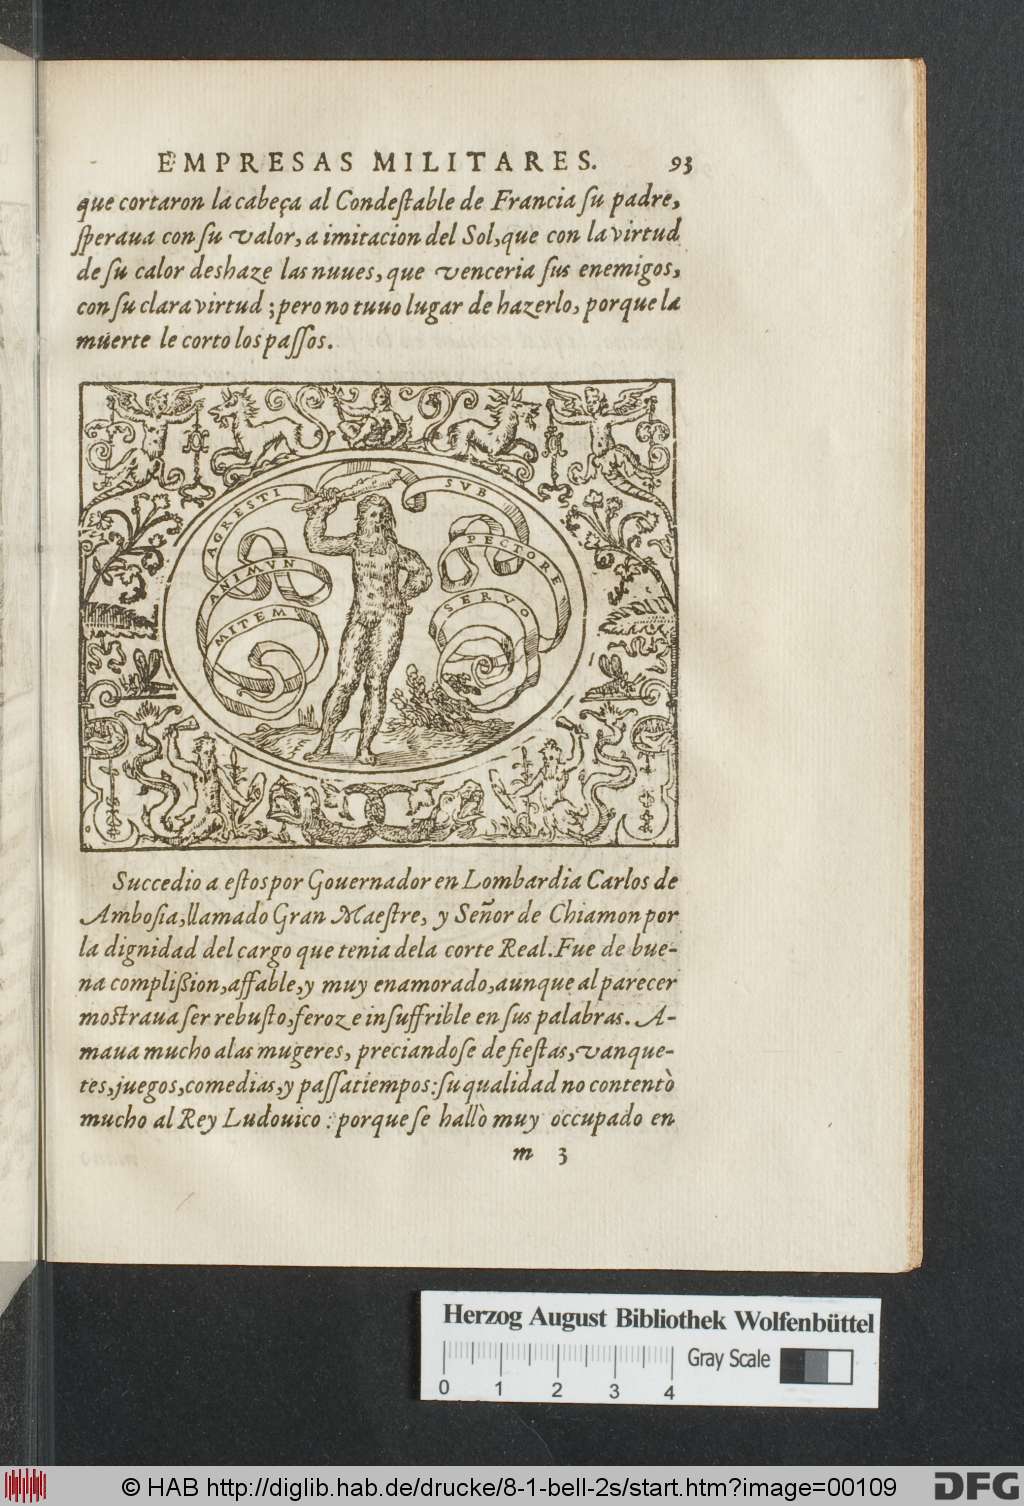 EMPRESAS MILITARES. 93
que cortaron la cabeça al Condeſtable de Francia ſu padre,
ſperaua con ſu valor, a imitacion del Sol, que con la virtud
de ſu calor deshaze las nuues, que venceria ſus enemigos,
con ſu clara virtud ; pero no tuuo lugar de hazerlo, porque la
muerte le corto los paſſos.
AGRESTI SVB
ANIMVN PECTORE
MITEM SERVO
Succedio a eſtos por Gouernador en Lombardia Carlos de
Amboſia, llamado Gran Maeſtre, y Señor de Chiamon por
la dignidad del cargo que tenia dela corte Real. Fue de bue-
na complißion, affable, y muy enamorado, aunque al parecer
moſtraua ſer rebuſto, feroz e inſuffrible en ſus palabras. A-
maua mucho alas mugeres, preciandoſe de fieſtas, vanque-
tes, juegos, comedias, y paſſatiempos: ſu qualidad no contentò
mucho al Rey Ludouico : porque ſe hallò muy occupado en
m 3
Herzog August Bibliothek Wolfenbüttel
Gray Scale
0 1 2 3 4
© HAB http://diglib.hab.de/drucke/8-1-bell-2s/start.htm?image=00109
DFG